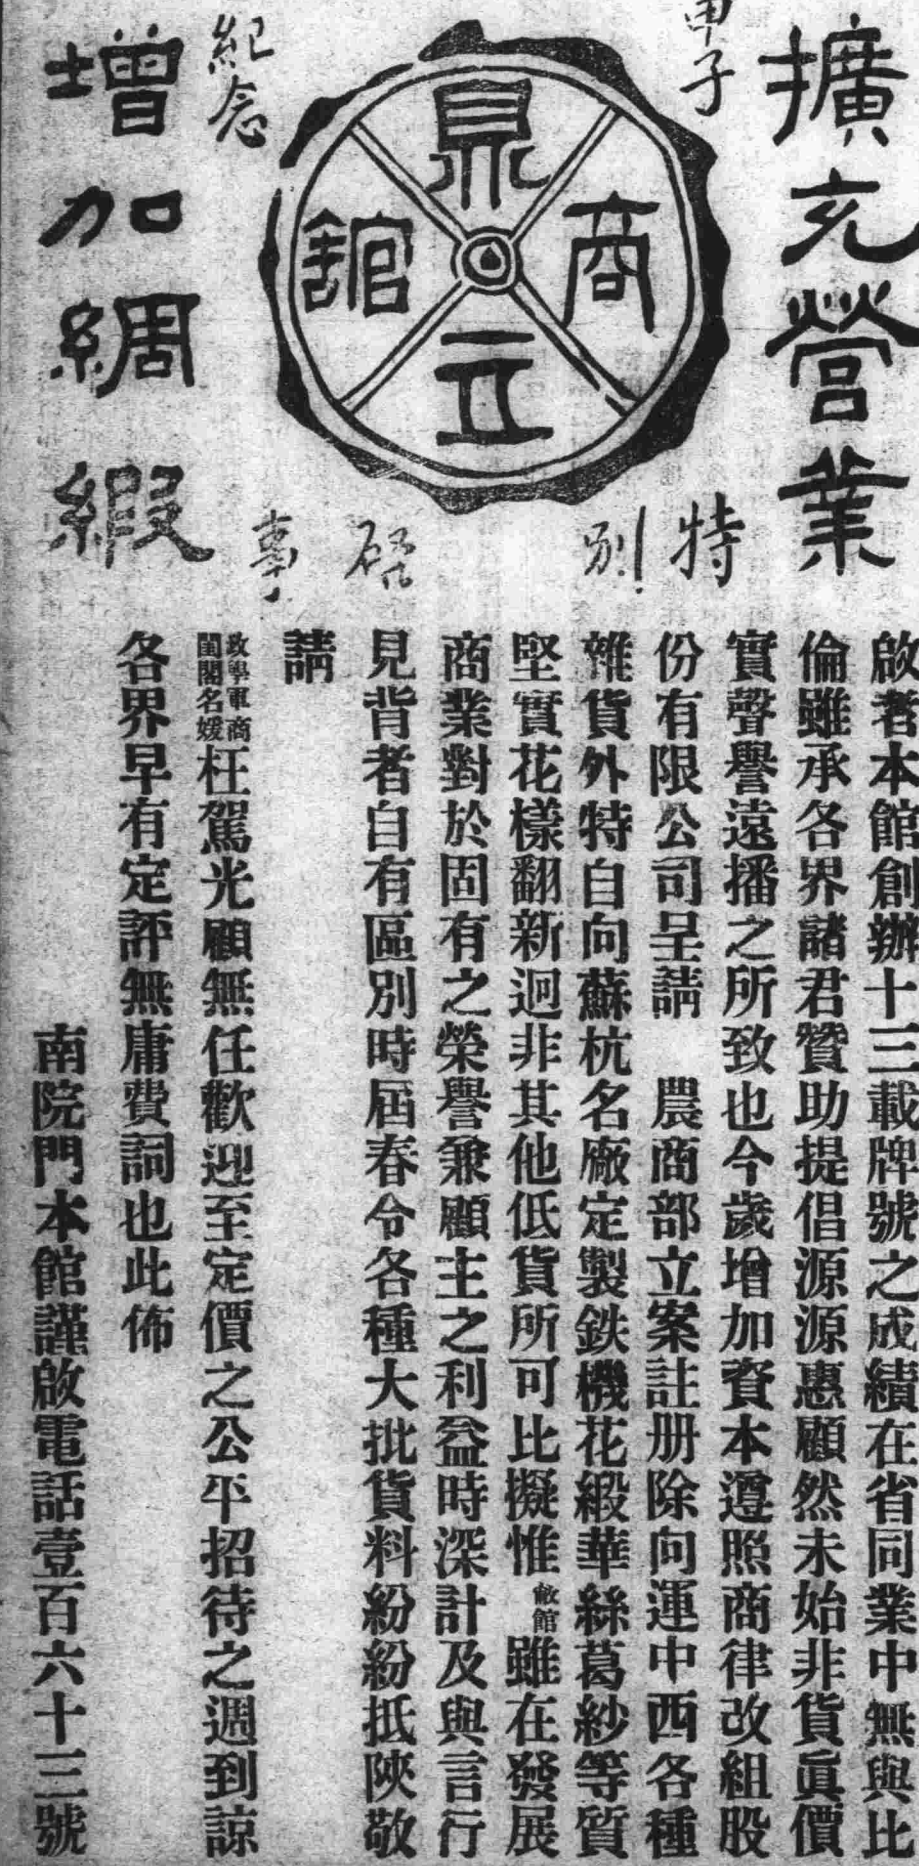 擴充營業
甲子
紀念
鼎立商館
特別啓事
增加綢緞
啟者本館創辦十三載牌號之成績在省同業中無與比
倫雖承各界諸君贊助提倡源源惠顧然未始非貨眞價
實聲譽遠播之所致也今歲增加資本遵照商律改組股
份有限公司呈請　農商部立案註册除向運中西各種
雜貨外特自向蘇杭名廠定製鉄機花緞華絲葛紗等質
堅實花樣翻新迥非其他低貨所可比擬惟敝館雖在發展
商業對於固有之榮譽兼顧主之利益時深計及與言行
見背者自有區別時屆春令各種大批貨料紛紛抵陝敬
請
政學軍商閨閣名媛枉駕光顧無任歡迎至定價之公平招待之週到諒
各界早有定評無庸費詞也此佈
南院門本館謹啟電話壹百六十三號